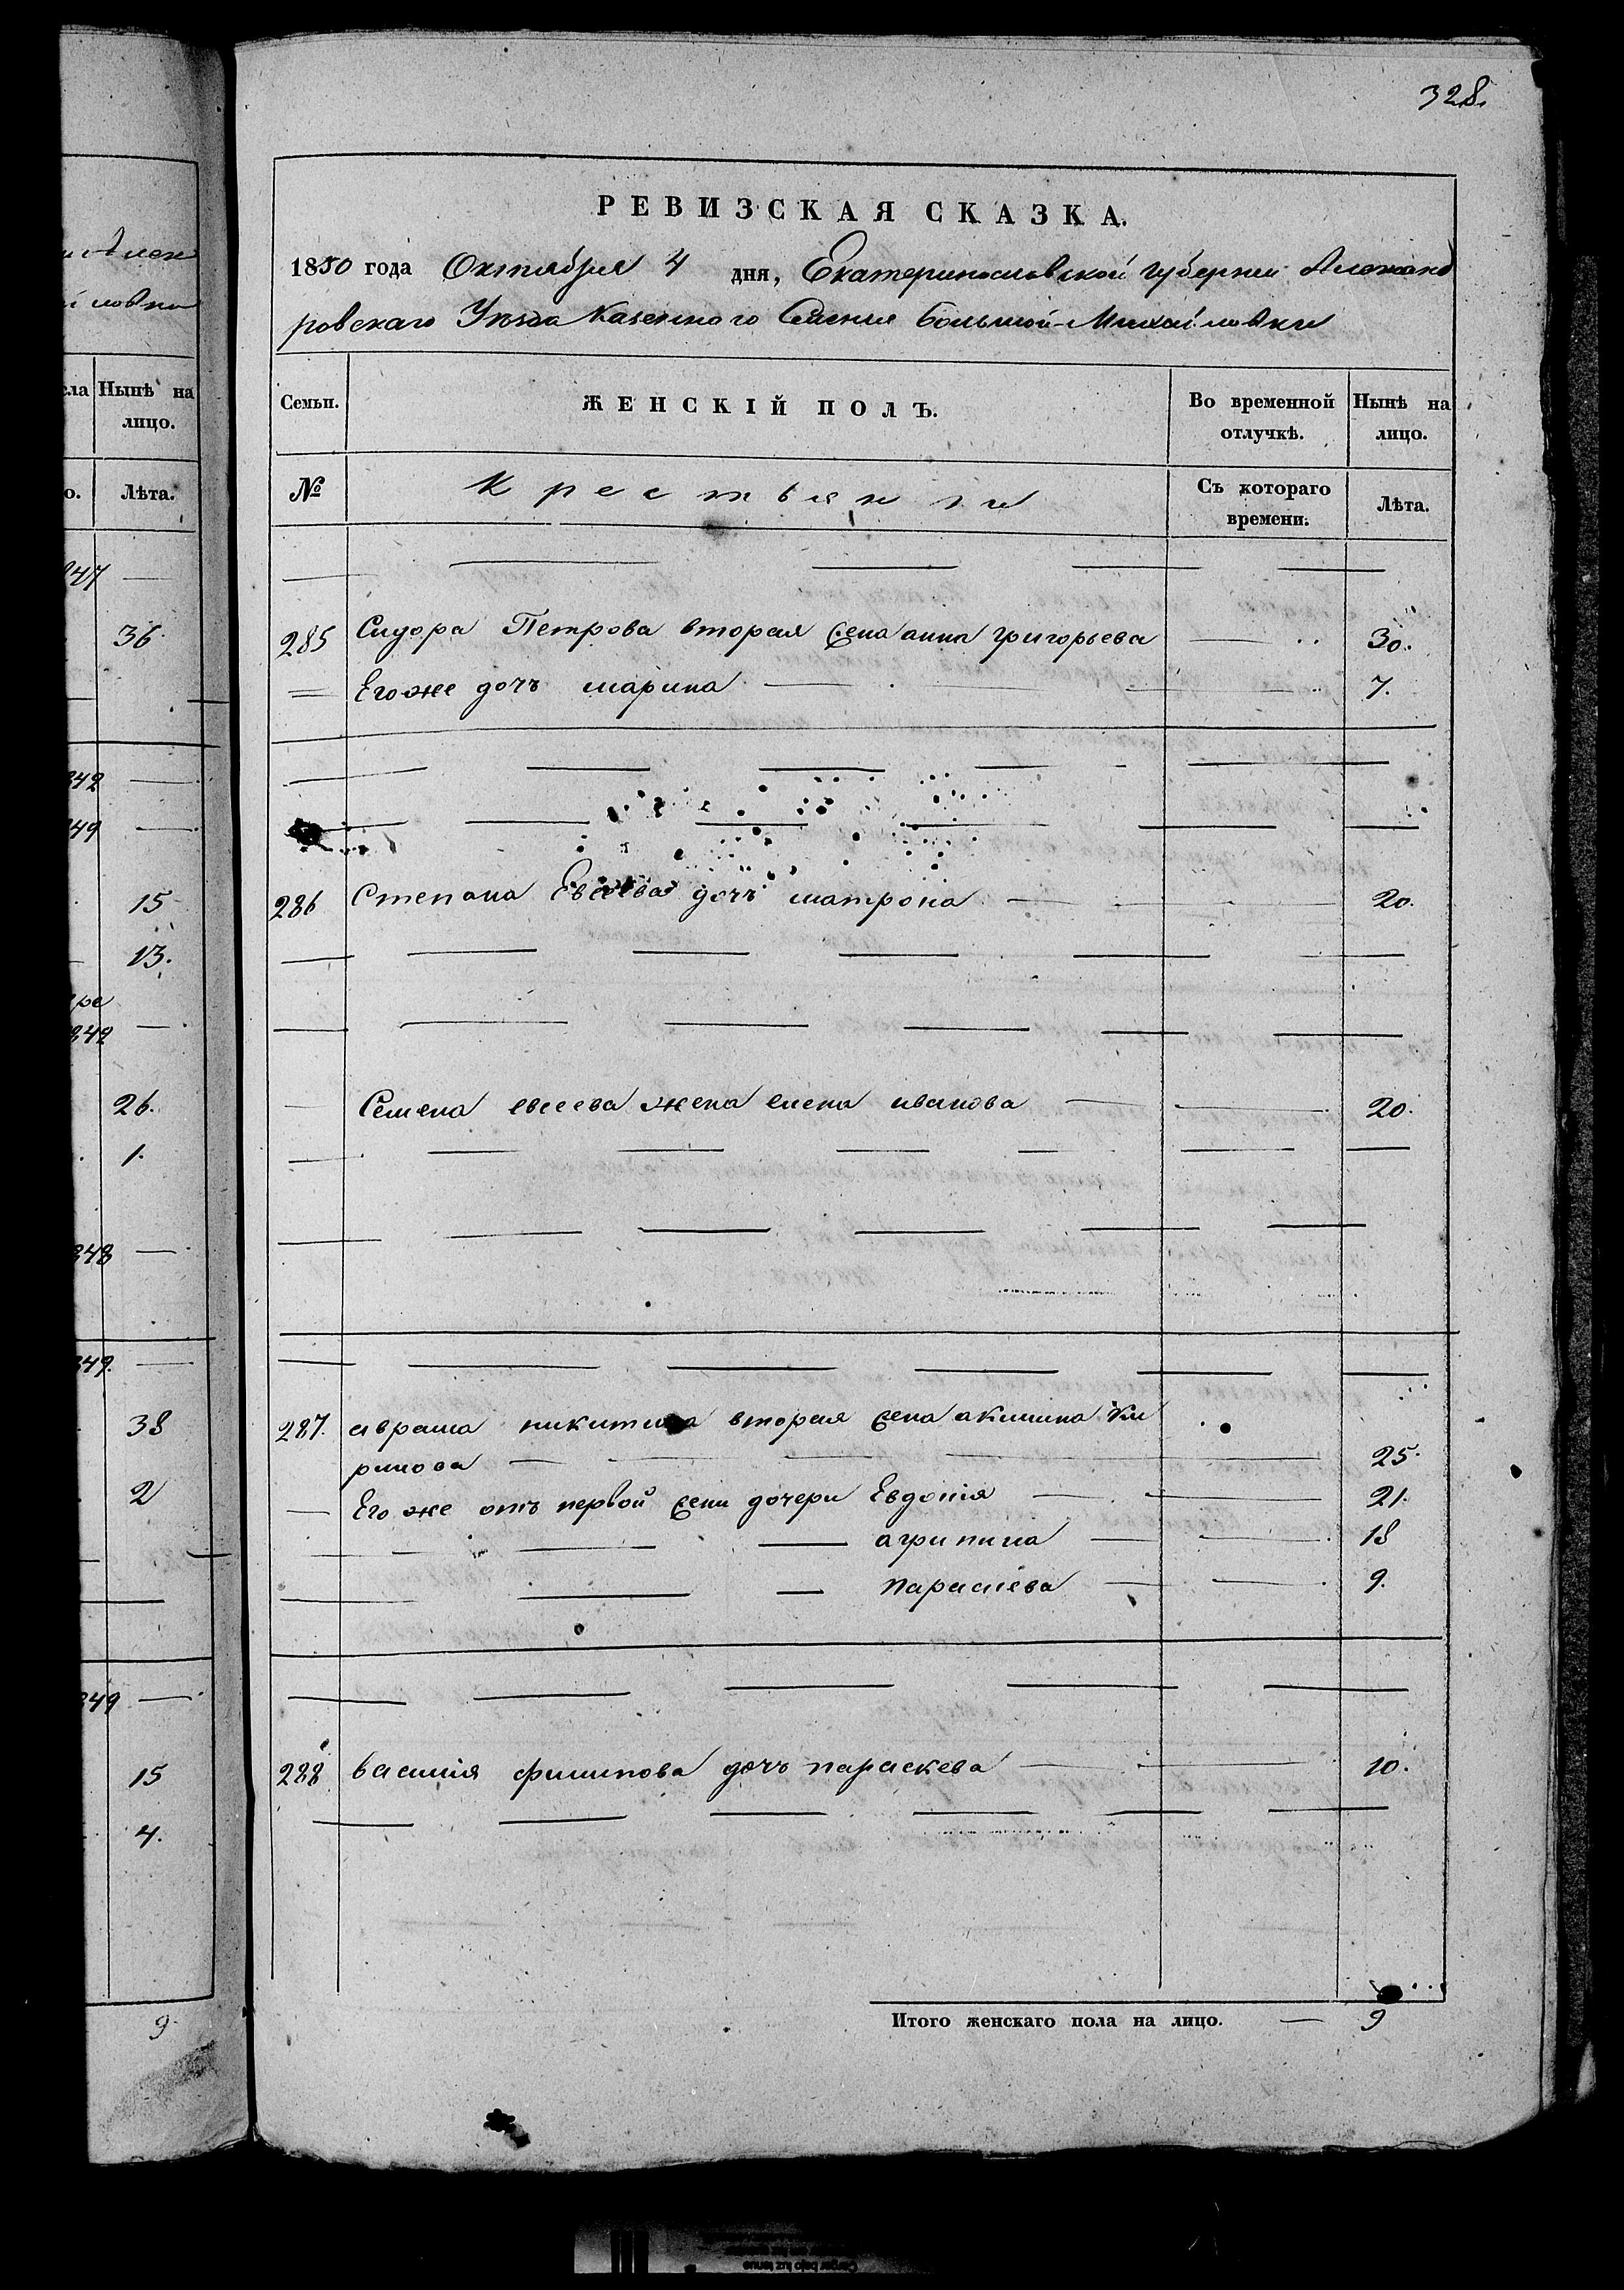 328.
РЕВИЗСКАЯ СКАЗКА.
1850 года Октября 4 дня, Екатеринославской губернии Александ
ровскаго Уезда Казеннаго Селенія Большой-Михайловки
ла Нынѣ на лицо.
о. Лѣта.
Семьи. ЖЕНСКІЙ ПОЛЪ. Во временной отлучкѣ. Нынѣ на лицо.
№ Крестьянки Съ котораго времени. Лѣта.
847
36
285 Сидора Петрова вторая жена анна григорьева 30.
Его же дочъ марина 7.
842
849
15
13.
286 Степана Евсеева дочъ матрона 20.
849
26.
1.
Семена евсеева жена елена иванова 20.
848
849.
38
2
287. аврама никитина вторая жена акилина Ки
рилова 25.
Его же отъ первой жены дочери Евдокія 21.
агрипина 18
параскева 9.
849
15
4.
288 василія филипова дочъ параскева 10.
9
Итого женскаго пола на лицо. 9